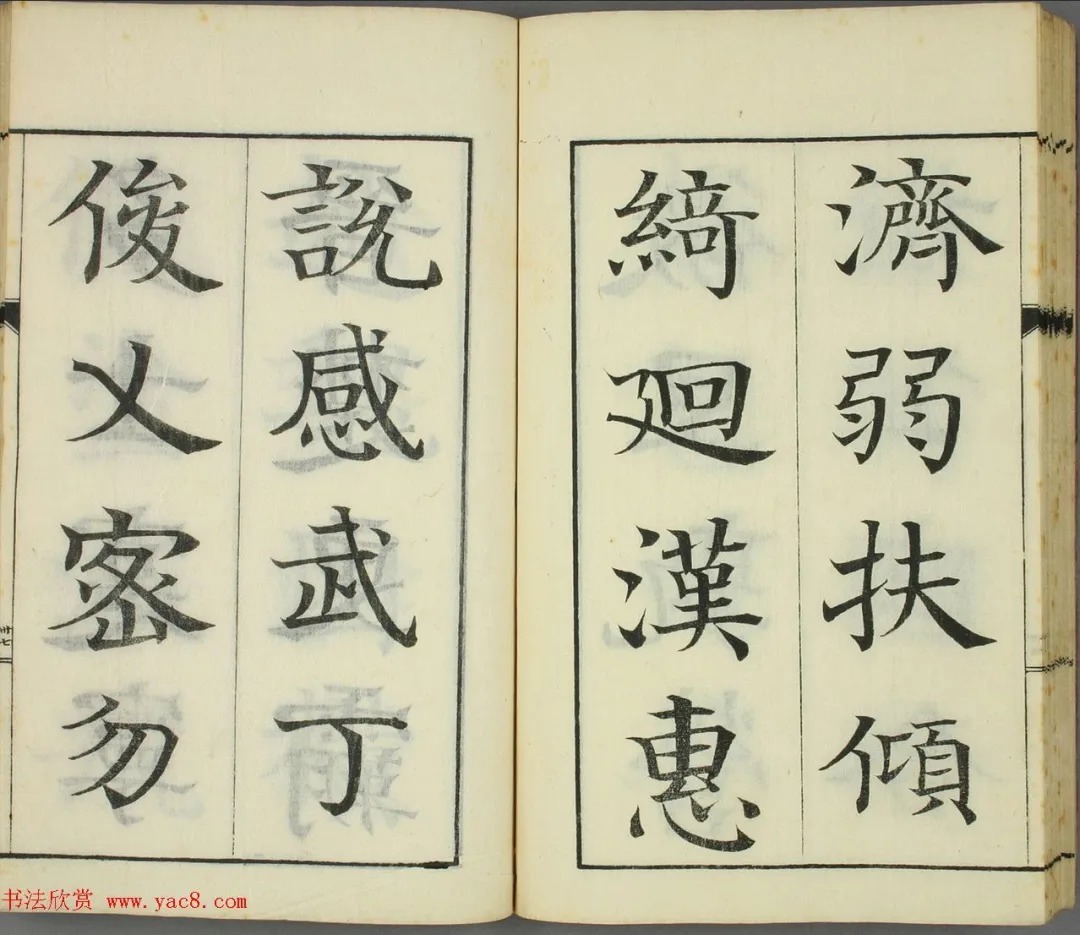 濟弱扶傾
綺廻漢惠
說感武丁
俊乂密勿
卅七
书法欣赏 www.yac8.com